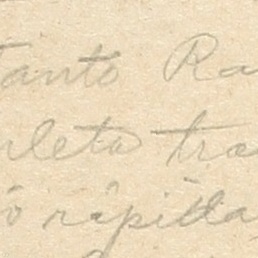 tanto Ra
uleta tra
ó rápida